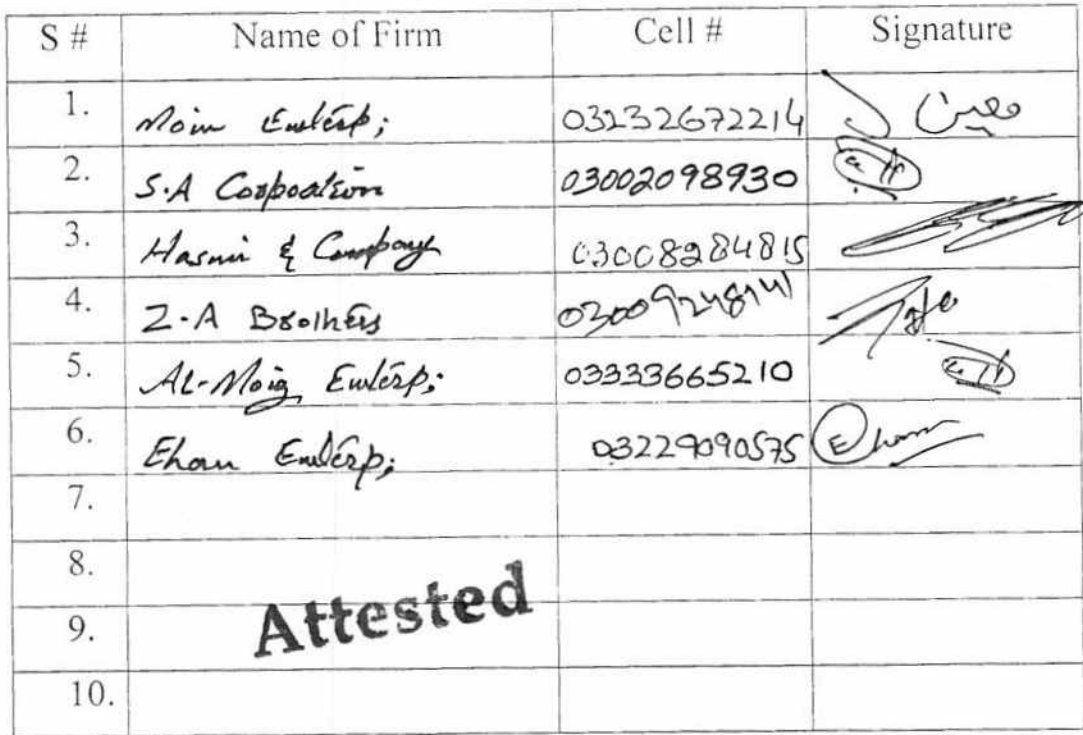 S # Name of Firm Cell # Signature
1. Moin Enterp; 03232672214 معین
2. S.A Corporation 03002098930
3. Hasmi & Company 03008284815
4. Z.A Brothers 03009248141
5. AL-Moiz Enterp; 03333665210
6. Ehan Enterp; 03229090575 Ehan
7.
8.
Attested
9.
10.